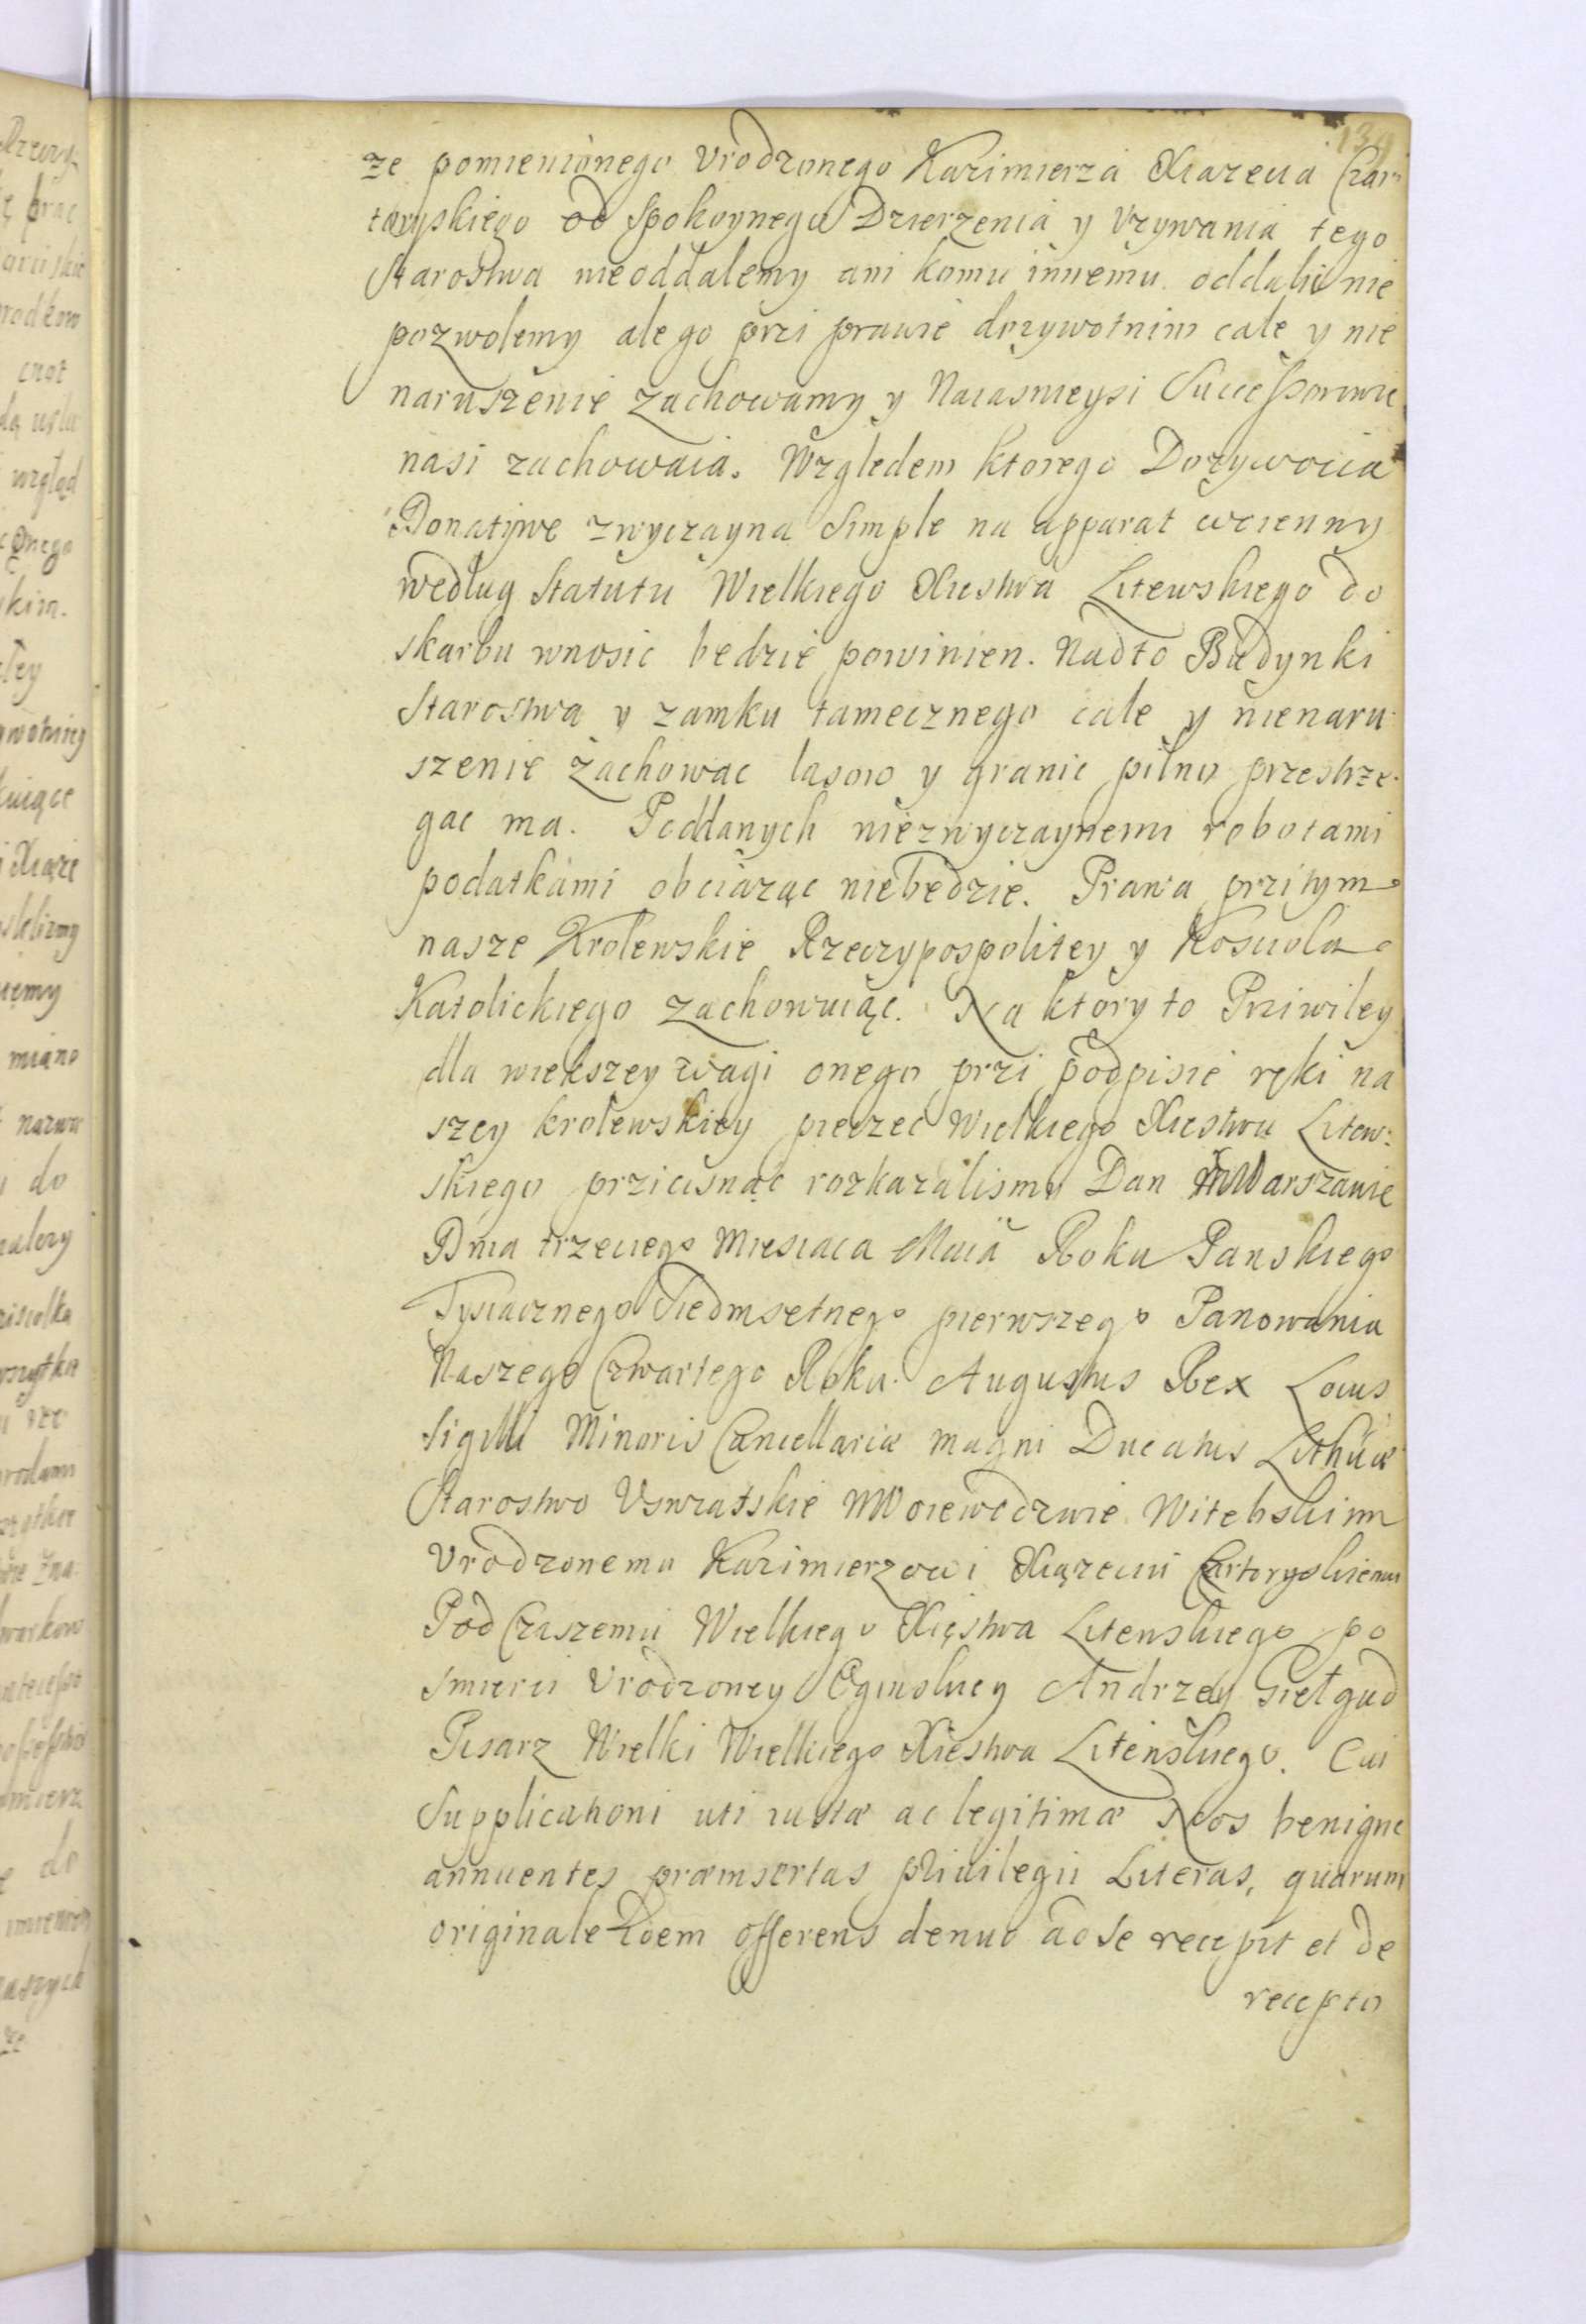 139
że pomienionego Vrodzonego Kazimierza Xiazecia Czar
toryskiego od Spokoynego Dzierzenia y Vzywania tego
Starostwa nieoddalemy ani komu innemu oddalic nie
pozwolemy ale go przi prawie dozywotnim cale y nie
naruszenie zachowamy y Naiasnieysi Successorowie
nasi zachowaia. Względem ktorego Dozywocia
Donatywe zwyczayna Simple na apparat woienny
według Statutu Wielkiego Xiestwa Litewskiego do
skarbu wnosic bedzie powinien. Nadto Budynki
Starostwa y zamku tamecznego cale y nienaru
szenie zachowac lasow y granic pilno przestrze-
gac ma. Poddanych niezwyczaynemi robotami
podatkami obciązac niebędzie. Prawa przitym
nasze Krolewskie Rzeczypospolitey y Kosciola
Katolickiego zachowuiąc. Na ktory to Priwiley
dla wiekszey wagi onego przi podpisie ręki na
szey krolewskiey pieczec Wielkiego Xiestwa Litew:
skiego przicisnąc rozkazalismy Dan w Warszawie
Dnia trzeciego Miesiaca Maia Roku Panskiego
Tysiacznego Siedmsetnego pierwszego Panowania
Naszego Czwartego Roku. Augustus Rex Locus
Sigilli Minoris Cancellariæ Magni Ducatus Lithuæ
Starostwo Vswiatskie w Woiewodzwie Witebskim
Vrodzonemu Kazimierzowi Xiązeciu Czartoryskiemu
Pod Czaszemu Wielkiego Xięstwa Litewskiego po
smierci Vrodzoney Oginskiey Andrzey Giełgud
Pisarz Wielki Wielkiego Xiestwa Litewskiego. Cui
Supplicationi uti iustæ ac legitimæ Nos benigne
annuentes præinsertas Privilegii Literas, quarum
originale Idem offerens denuo ad se recepit et de
recepto